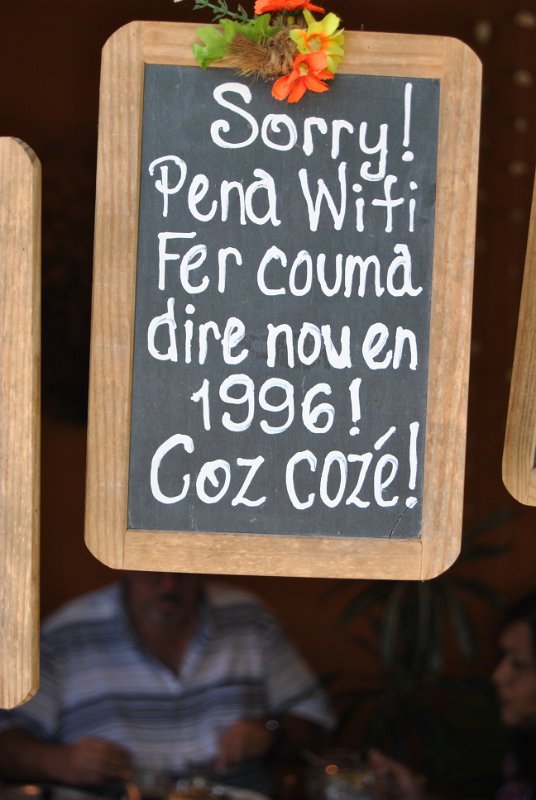 Sorry!
Pena Wifi
Fer couma
dire nou en
1996!
Coz cozé!